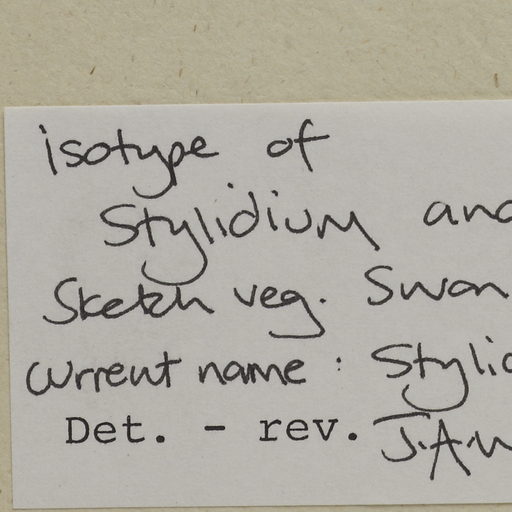 isotype of
Stylidium and
Sketch veg. Swan
Current name : Stylid
Det. - rev. J.A.W